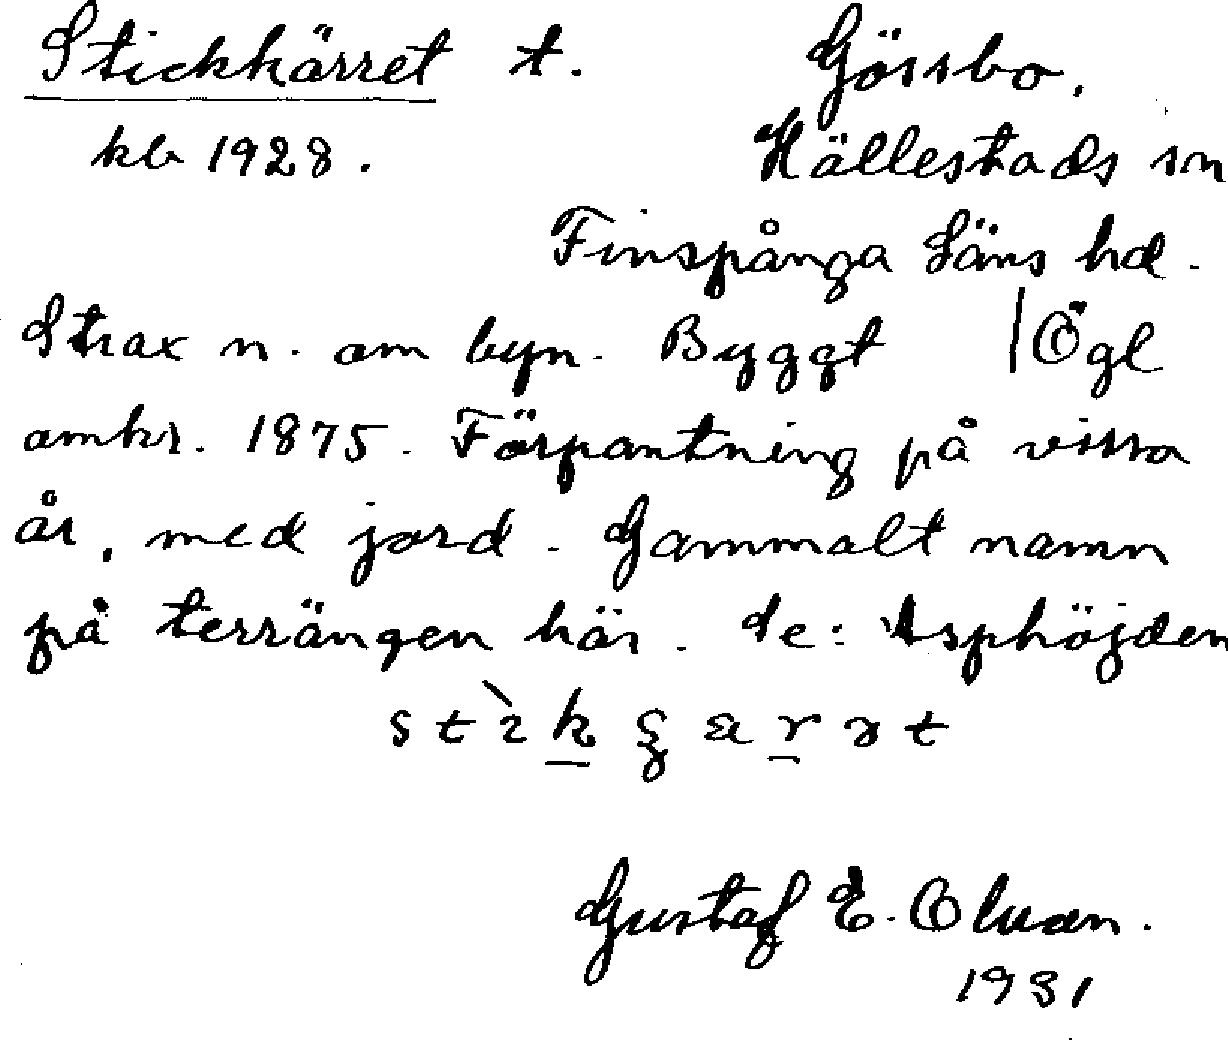 Stickkärret t. Gössbo.
kb 1928. Hällestads sn
Finspånga läns hd.
Strax n. om byn. Byggt | Ögl
omkr. 1875. Förpantning på vissa
år, med jord. Gammalt namn
på terrängen här. Se: Asphöjden
Gustaf E. Olvan.
1931